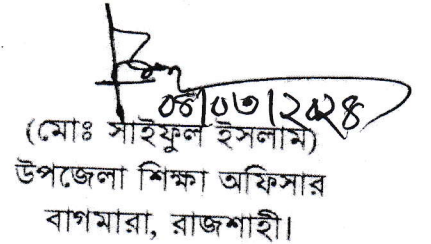 ০৪|০৩|২০২৪
(মোঃ সাইফুল ইসলাম)
উপজেলা শিক্ষা অফিসার
বাগমারা, রাজশাহী।